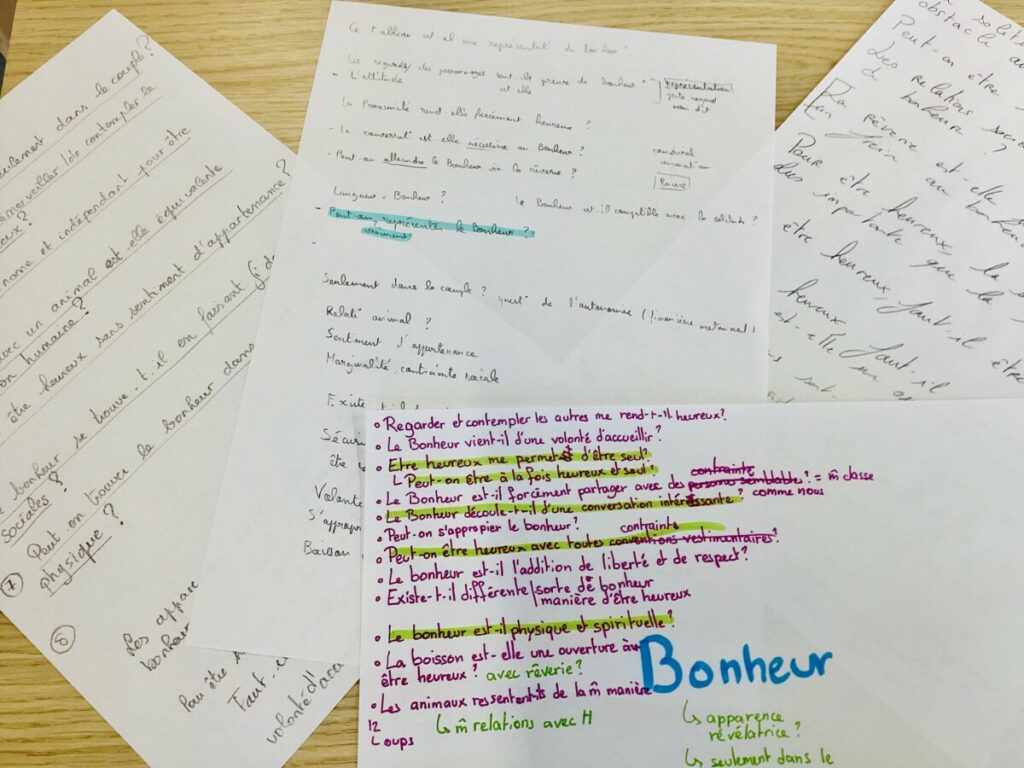 seulement dans le couple?
émerveiller/de contempler la
reux?
nome et indépendant pour être
avec un animal est elle équivalente
on humaine?
être heureux sans sentiment d'appartenance?
bonheur se trouve-t-il en faisant fi d
sociales?
Peut-on trouver le bonheur dans
physique?
7
8
Les appare
bonheur
Pour être
Faut-
volonté d'
Ce tableau est-il une représentat° de bonheur?
Les regards/ des personnages sont-ils preuve de bonheur
- L'attitude est elle
représentation
non dit
La Proximité rend elle forcément heureux ?
- La conversat° est-elle nécessaire au Bonheur ?
- Peut-on atteindre le Bonheur via la rêverie ?
Longueur = Bonheur ?
le Bonheur est-il compatible avec la solitude ?
- Peut-on représenter le Bonheur ?
vraiment
Seulement dans le couple ?
quest° de l'autonomie (financière
Relat° animal ?
Sentiment d'appartenance
Marginalité, contrainte sociale
Existe
Sécuri
être
Volonté
S'approp
Boisson
obstacl
Peut-on être
Les relations soci
bonheur ?
La rêverie est-elle
un frein au bonheur
Pour être heureux,
plus importante que la
être heureux, faut-il
heureux faut-il
est-elle
• Regarder et contempler les autres me rend-t-il heureux?
• Le Bonheur vient-il d'une volonté d'accueillir?
• Etre heureux me permet d'être seul?
↳ Peut-on être à la fois heureux et seul?
contrainte
• Le Bonheur est-il forcément partager avec des persona semblable? = m̂ classe
• Le Bonheur découle-t-il d'une conversation intéressante? comme nous
• Peut-on s'appropier le bonheur?
contrainte
• Peut-on être heureux avec toutes conventions vestimentaires?
• Le bonheur est-il l'addition de liberté et de respect?
• Existe-t-il différente sorte de bonheur
manière d'être heureux
• Le bonheur est-il physique et spirituelle?
• La boisson est-elle une ouverture à
être heureux? avec rêverie?
• Les animaux ressentent-ils de la m̂ manière
↳ m̂ relations avec H
12
Loups
Bonheur
↳ apparence
révélatrice?
↳ seulement dans le